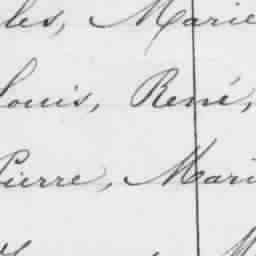 les, Marie
Louis, René,
Pierre, Mari